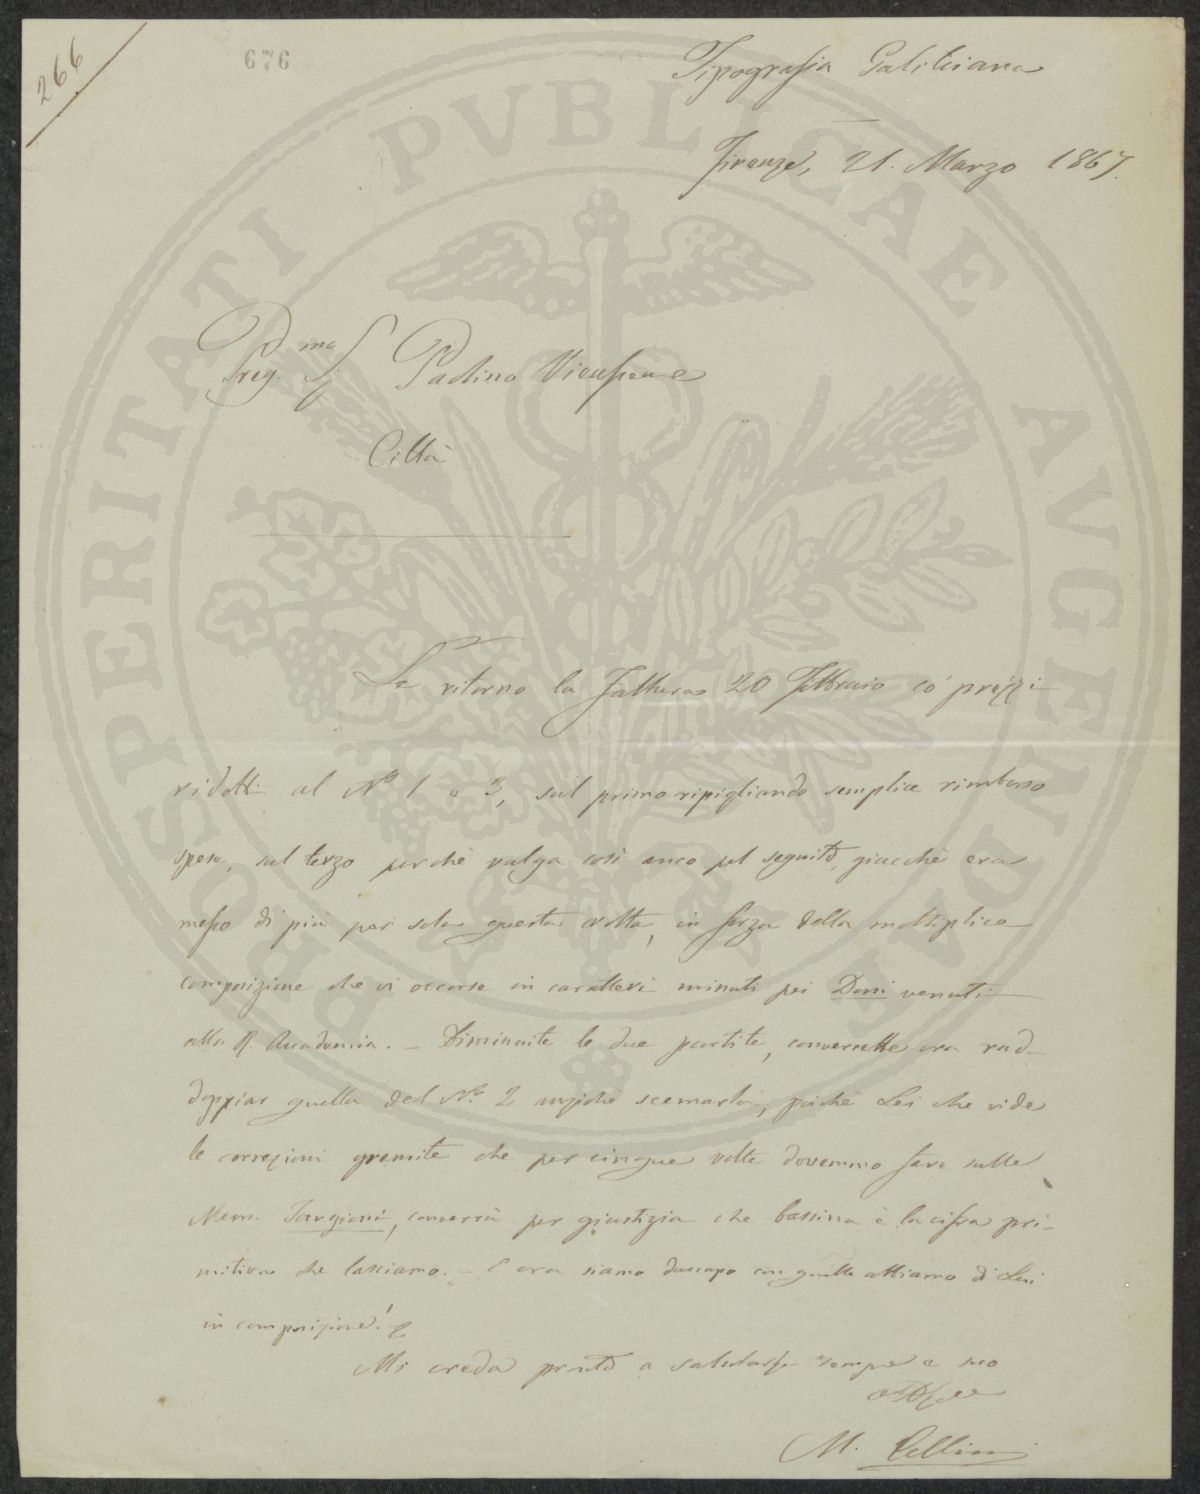 266
676
Tipografia Galileiana
Firenze, 21. Marzo 1867.
Preg.mo Sig.
Città
Le ritorno la Fattura 20 Febbraio co' prezzi
ridotti al N.o 1 e 3, sul primo ripigliando semplice rimborso
spese, sul terzo perchè valga così anco pel seguito, giacchè era
messo di più per sola questa volta, in forza della moltiplice
composizione che vi occorse in caratteri minuti pei Doni venuti
alla R. Accademia. – Diminuite le due partite, converrebbe ora rad-
doppiar quella del N.o 2 anzichè scemarla, poichè Lei che vide
le correzioni gremite che per cinque volte dovemmo fare sulle
Mem. Targioni, converrà per giustizia che bassina è la cifra pri-
mitiva che lasciamo. – E ora siamo daccapo con quella abbiamo di Lui
in composizione!
Mi creda pronto a salutarla sempre e suo
M. Cellini
PROSPERITATI PVBLICAE AVGENDAE